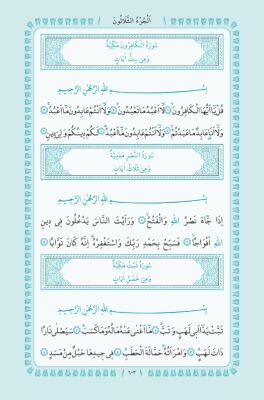 الْجُزْءُ الثَّلَاثُونَ
سُورَةُ الْكَافِرُونَ مَكِّيَّةٌ
وَهِيَ سِتُّ آيَاتٍ
بِسْمِ اللهِ الرَّحْمٰنِ الرَّحِيمِ
قُلْ يَا أَيُّهَا الْكَافِرُونَ ۝ لَا أَعْبُدُ مَا تَعْبُدُونَ ۝ وَلَا أَنْتُمْ عَابِدُونَ مَا أَعْبُدُ ۝
وَلَا أَنَا عَابِدٌ مَا عَبَدْتُمْ ۝ وَلَا أَنْتُمْ عَابِدُونَ مَا أَعْبُدُ ۝ لَكُمْ دِينُكُمْ وَلِيَ دِينِ ۝
سُورَةُ النَّصْرِ مَدَنِيَّةٌ
وَهِيَ ثَلَاثُ آيَاتٍ
بِسْمِ اللهِ الرَّحْمٰنِ الرَّحِيمِ
إِذَا جَاءَ نَصْرُ اللهِ وَالْفَتْحُ ۝ وَرَأَيْتَ النَّاسَ يَدْخُلُونَ فِي دِينِ
اللهِ أَفْوَاجًا ۝ فَسَبِّحْ بِحَمْدِ رَبِّكَ وَاسْتَغْفِرْهُ إِنَّهُ كَانَ تَوَّابًا ۝
سُورَةُ تَبَّتْ مَكِّيَّةٌ
وَهِيَ خَمْسُ آيَاتٍ
بِسْمِ اللهِ الرَّحْمٰنِ الرَّحِيمِ
تَبَّتْ يَدَا أَبِي لَهَبٍ وَتَبَّ ۝ مَا أَغْنَى عَنْهُ مَالُهُ وَمَا كَسَبَ ۝ سَيَصْلَى نَارًا
ذَاتَ لَهَبٍ ۝ وَامْرَأَتُهُ حَمَّالَةَ الْحَطَبِ ۝ فِي جِيدِهَا حَبْلٌ مِنْ مَسَدٍ ۝
٦٠٣